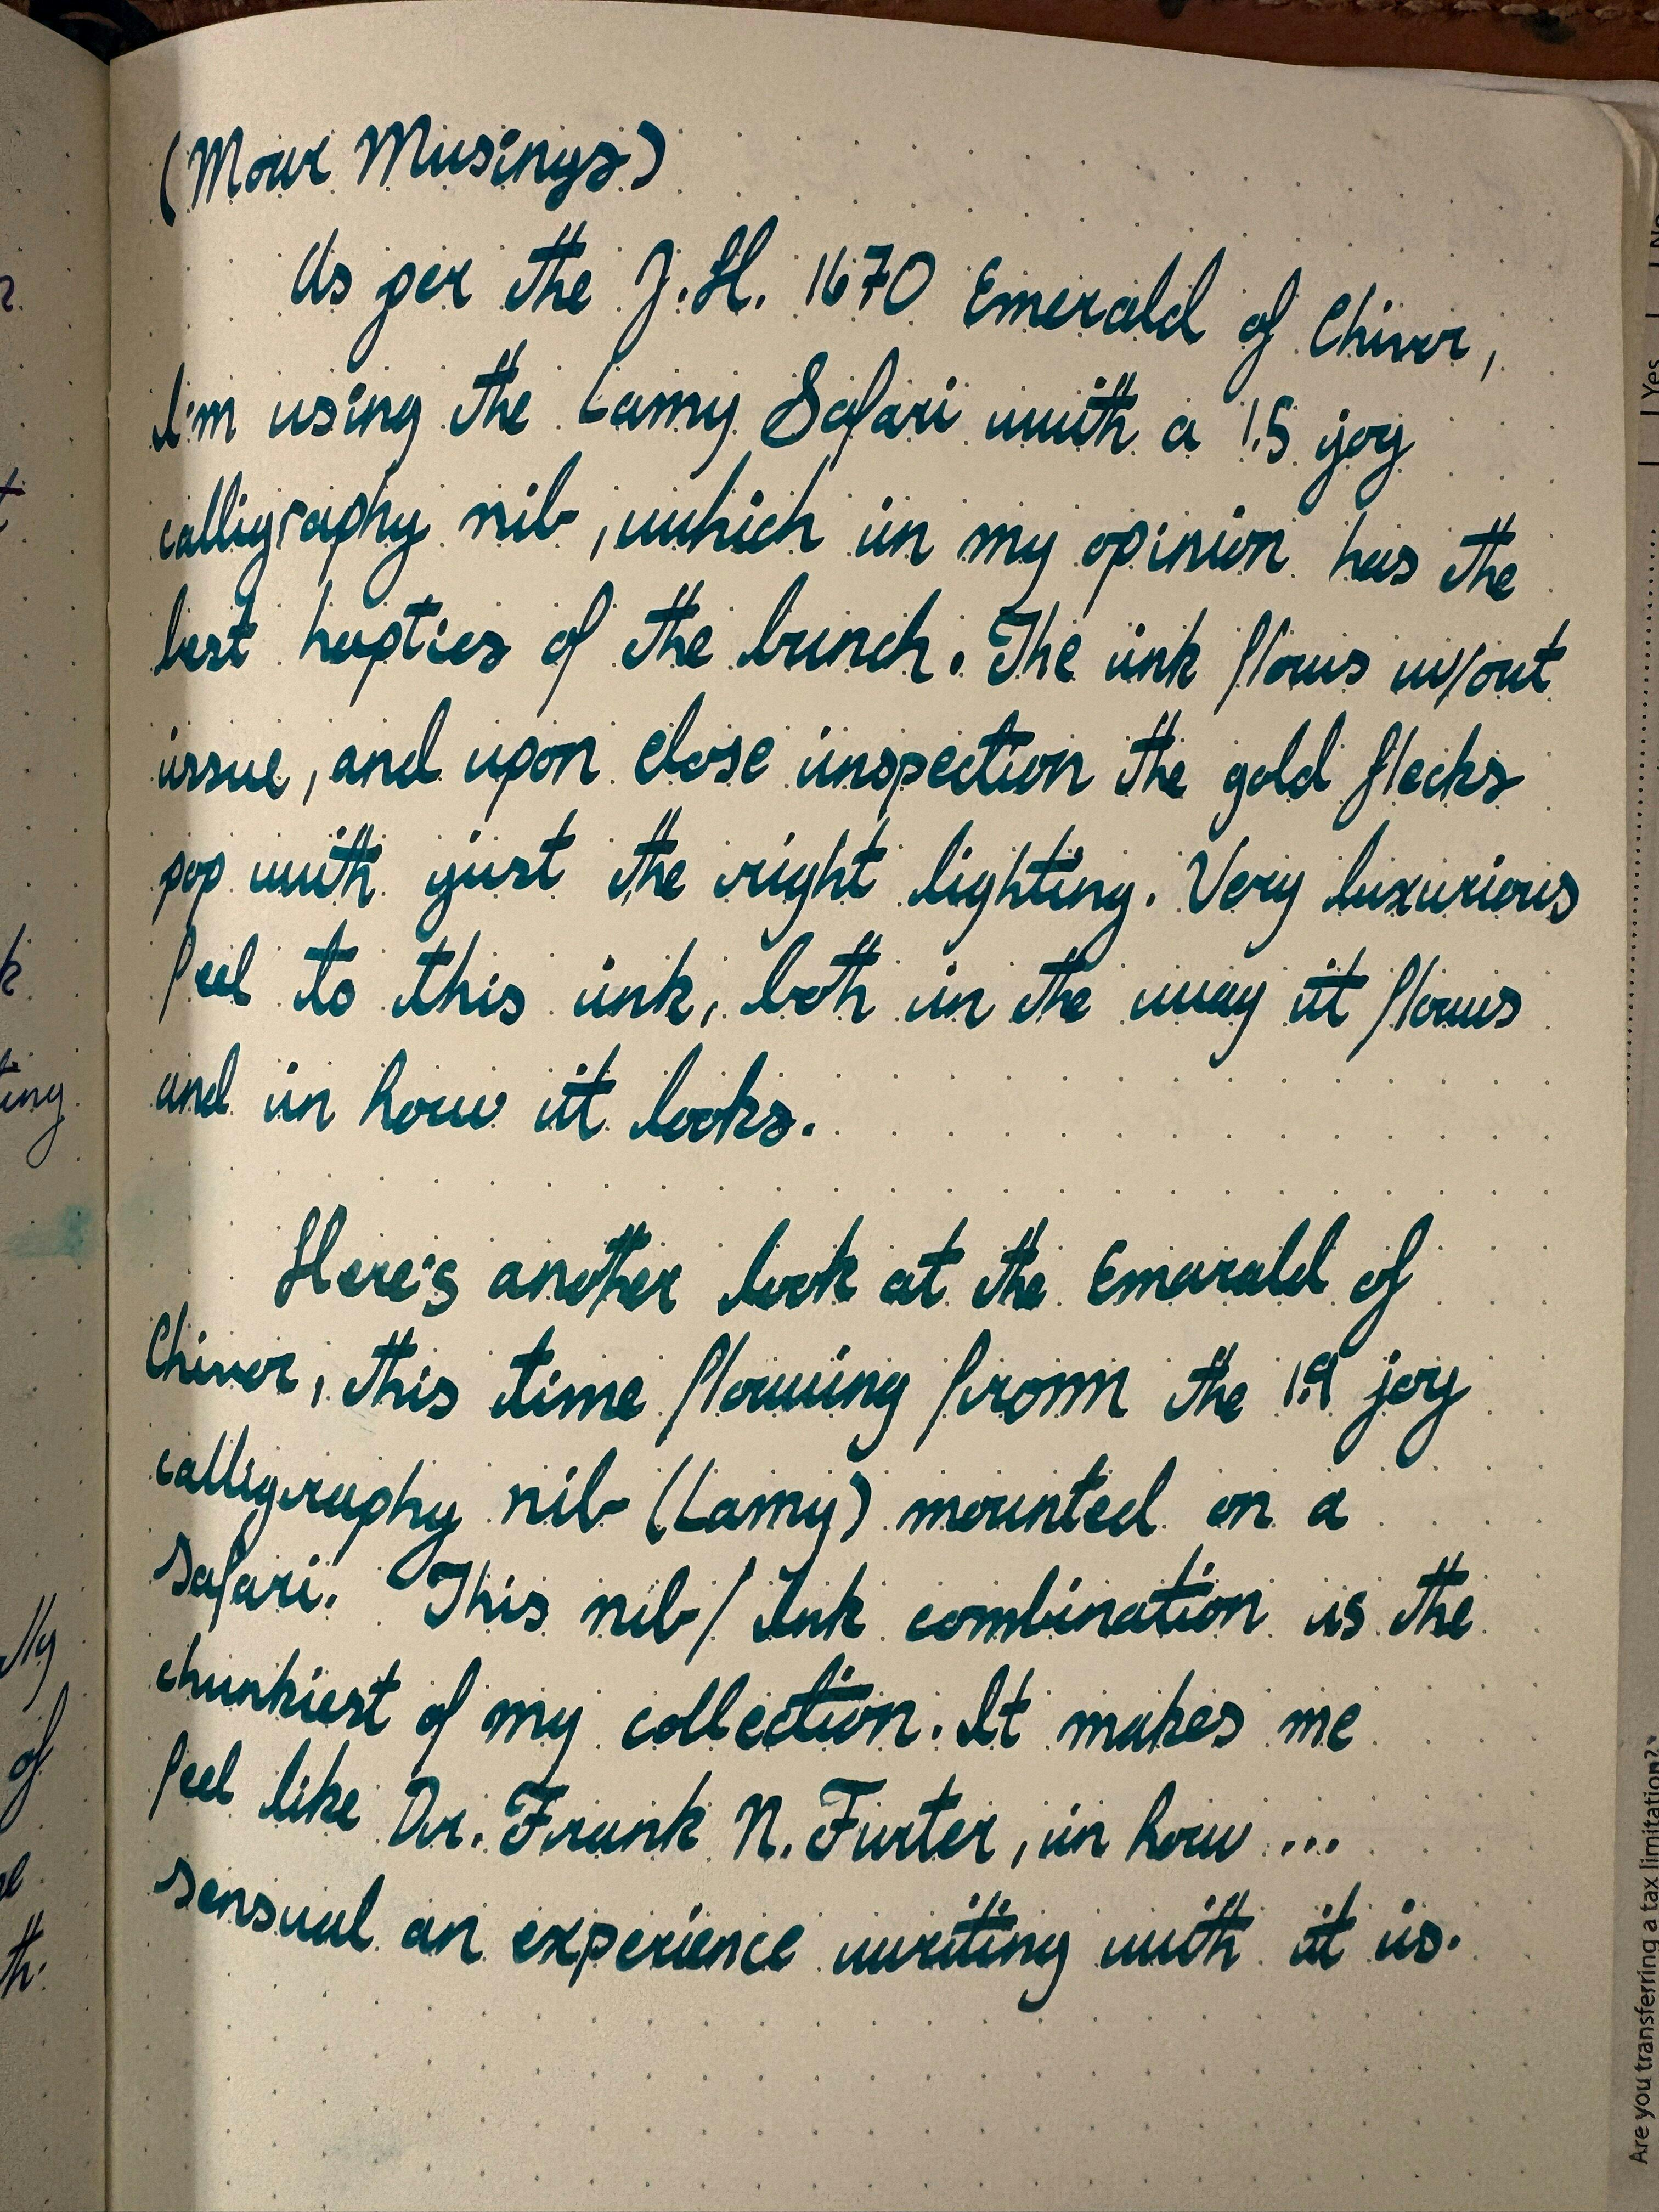 (More Musings)
As per the J.H. 1670 Emerald of Chivor,
I'm using the Lamy Safari with a 1.5 joy
calligraphy nib, which in my opinion has the
best haptics of the bunch. The ink flows w/out
issue, and upon close inspection the gold flecks
pop with just the right lighting. Very luxurious
feel to this ink, both in the way it flows
and in how it looks.
Here's another look at the Emerald of
Chivor, this time flowing from the 1.9 joy
calligraphy nib (Lamy) mounted on a
Safari. This nib/Ink combination is the
chunkiest of my collection. It makes me
feel like Dr. Frank N. Furter, in how ...
sensual an experience writing with it is.
ting
k
lly
of
th.
Yes
No
Are you transferring a tax limitation?